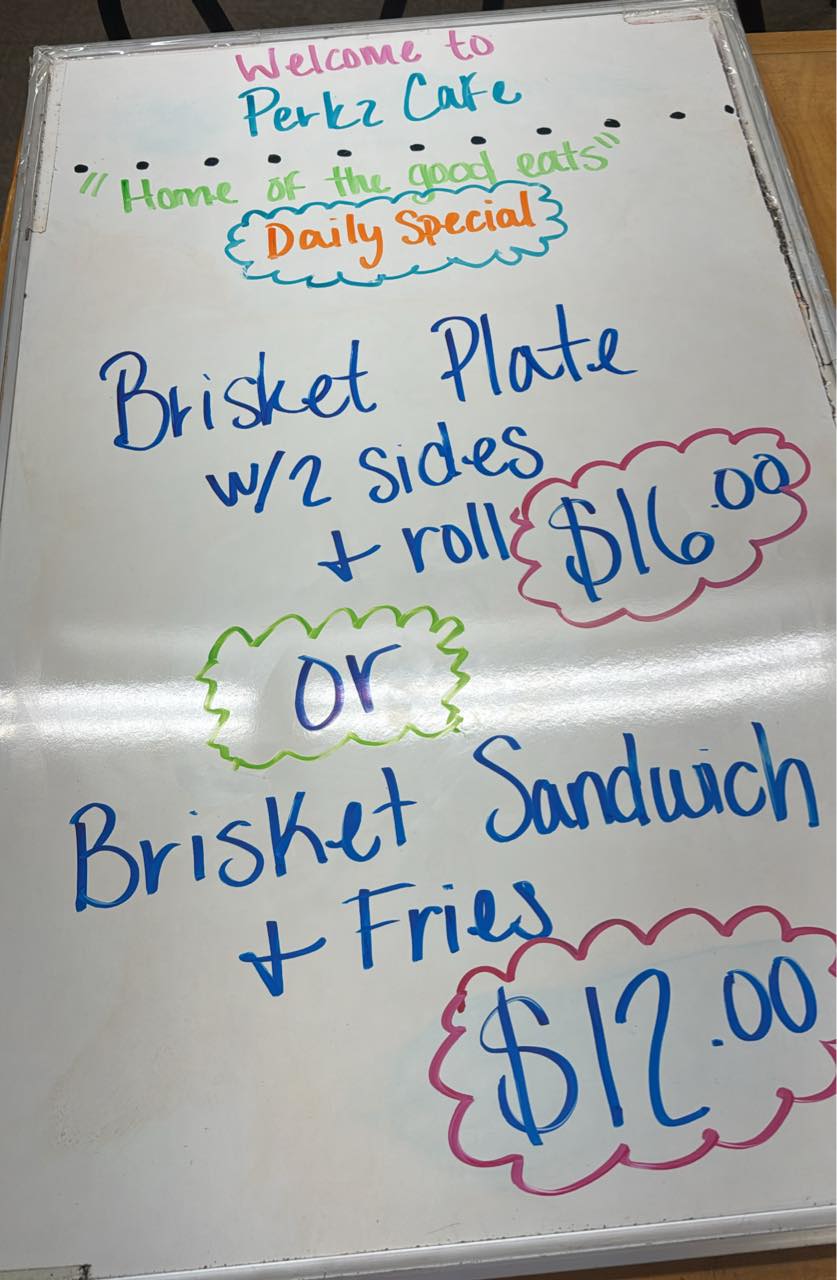 Welcome to
Perkz Cafe
"Home of the good eats"
Daily Special
Brisket Plate
w/2 sides
+ roll $16.00
or
Brisket Sandwich
+ Fries
$12.00